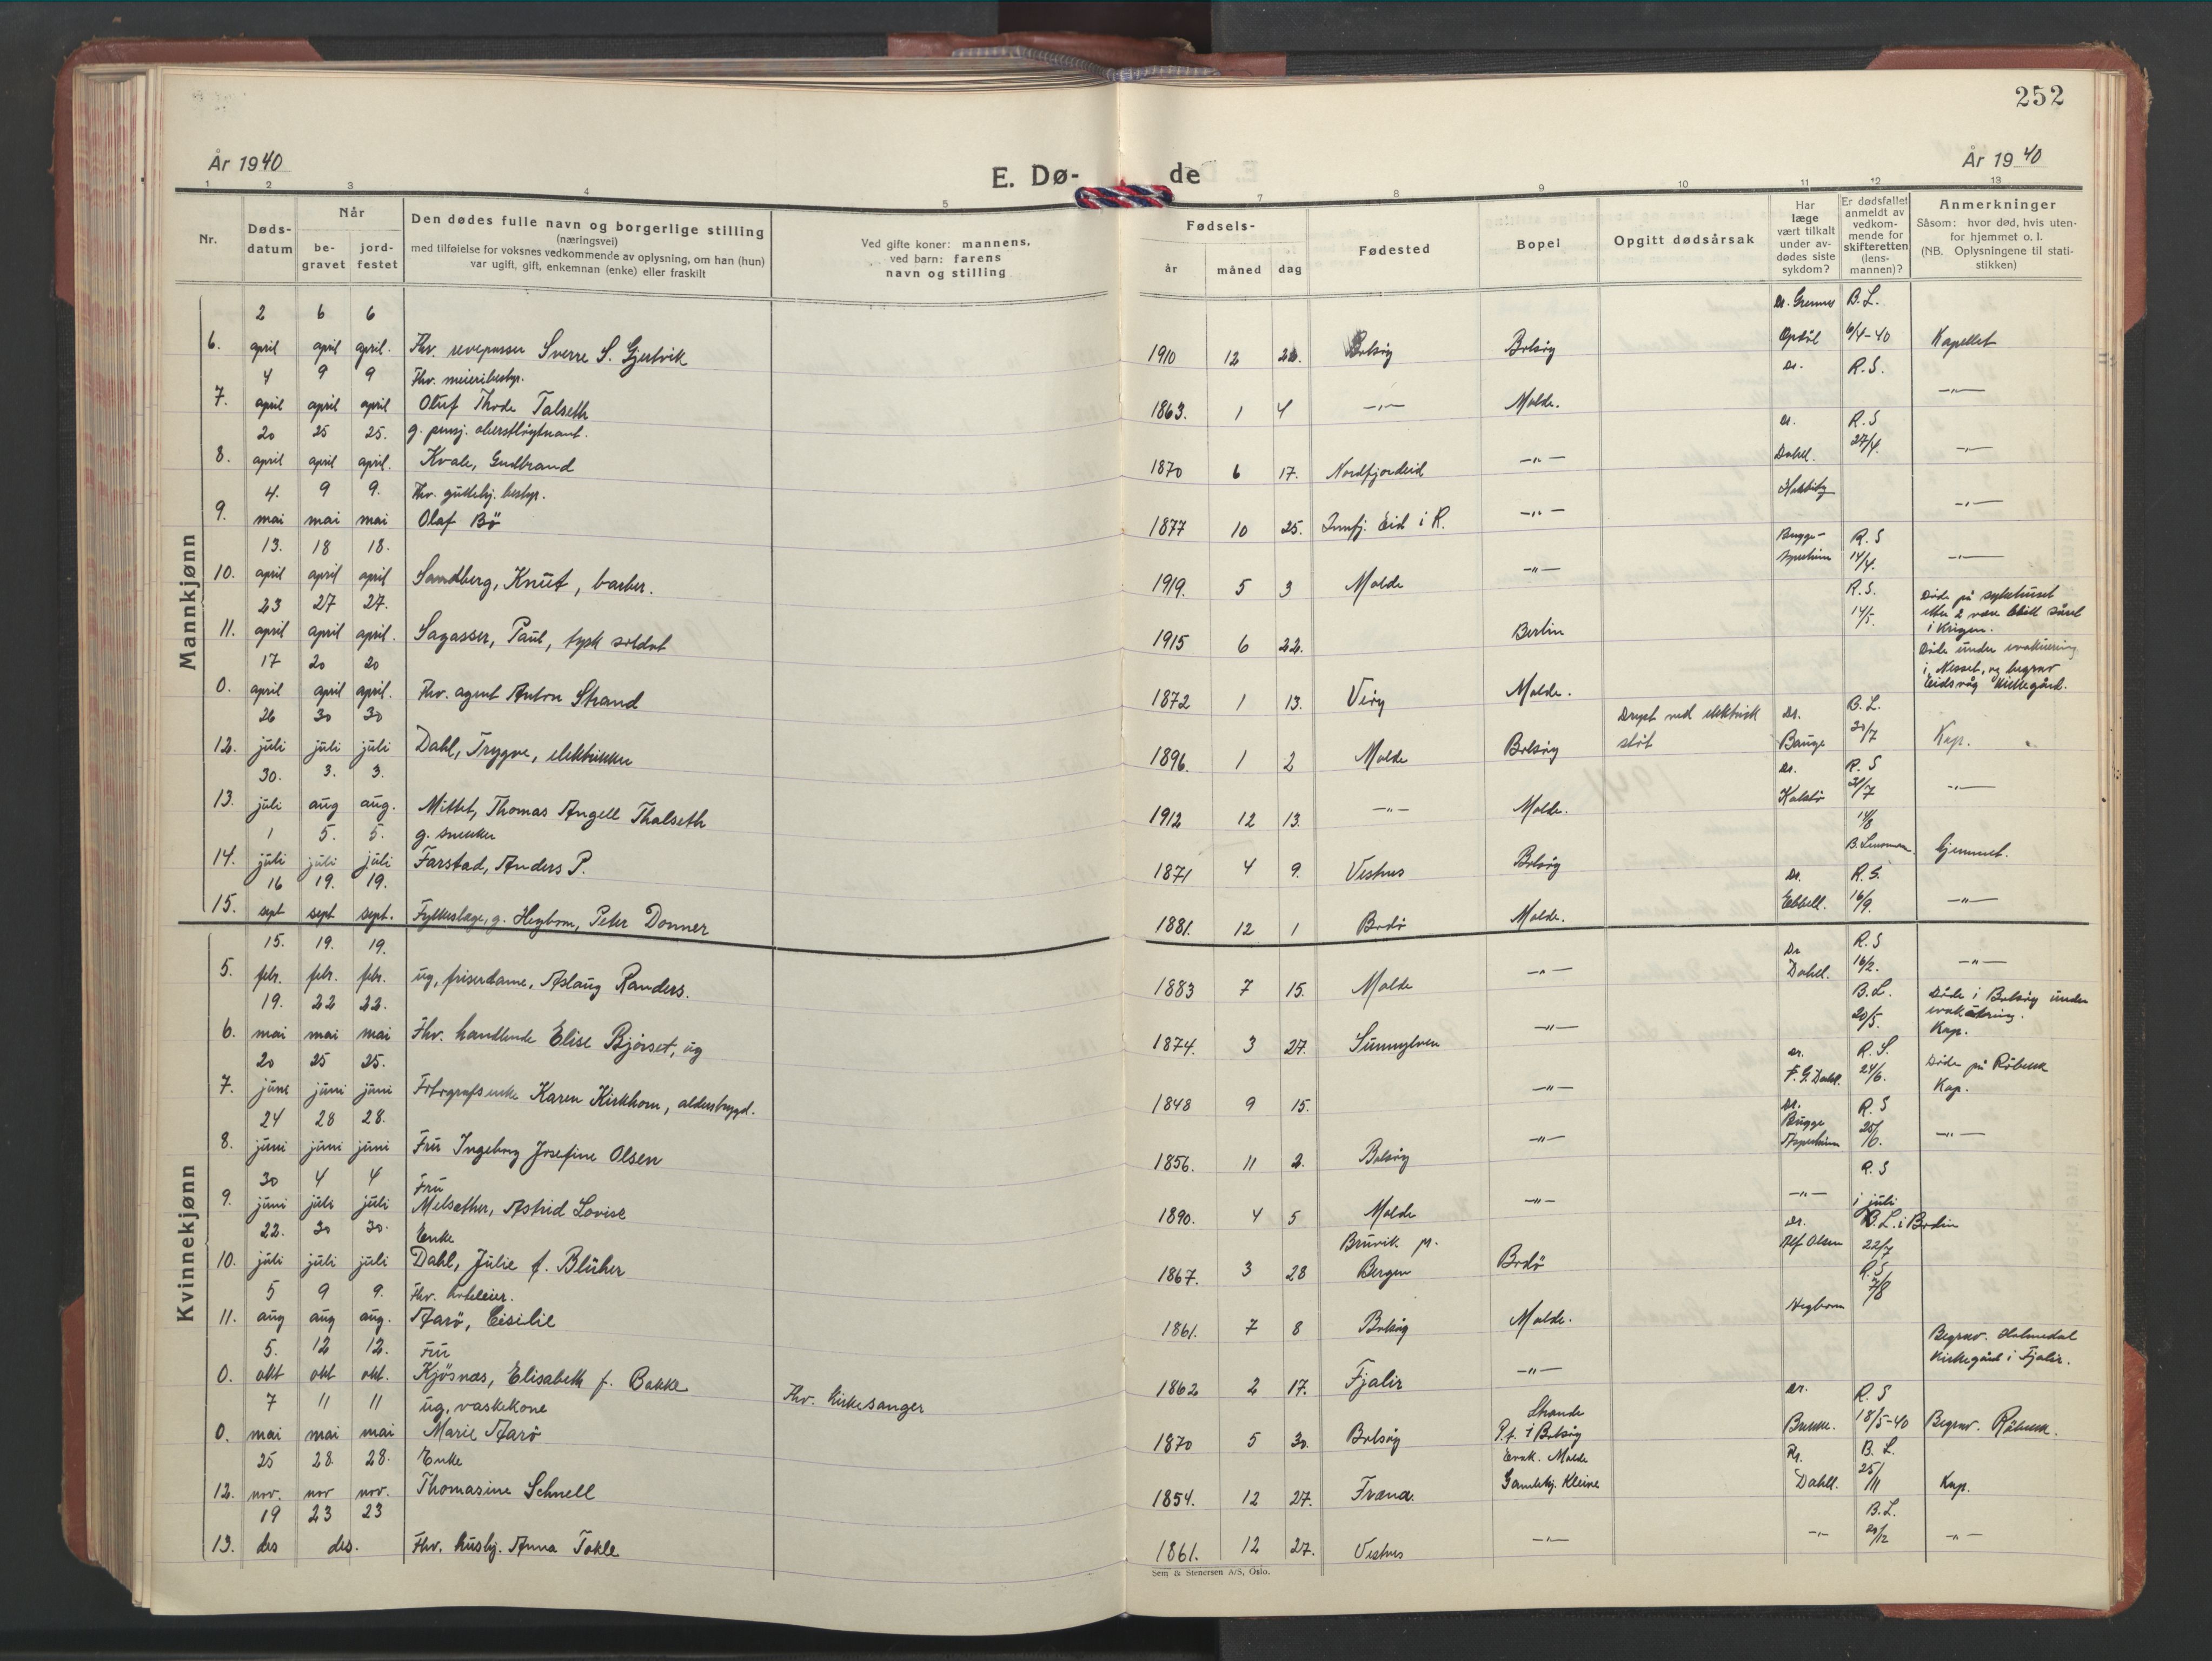 252
År 1940
E. Dø-
de
År 1940
1 2 3 4 5 7 8 9 10 11 12 13
Nr.
Døds-
datum
Når
be-
gravet
jord-
festet
Den dødes fulle navn og borgerlige stilling
(næringsvei)
med tilføielse for voksnes vedkommende av oplysning, om han (hun)
var ugift, gift, enkemnan (enke) eller fraskilt
Ved gifte koner: mannens,
ved barn: farens
navn og stilling
Fødsels-
år måned dag
Fødested
Bopel
Opgitt dødsårsak
Har
læge
vært tilkalt
under av-
dødes siste
sykdom?
Er dødsfallet
anmeldt av
vedkom-
mende for
skifteretten
(lens-
mannen)?
Anmerkninger
Såsom: hvor død, hvis uten-
for hjemmet o. l.
(NB. Oplysningene til stati-
stikken)
Mannkjønn
2 6 6 B. L.
6. april april april. Fhv. revepasser Sverre S. Gjertvik 1910 12 Bolsøy Bolsøy Opdöl 6/4-40 Kapellet
4 9 9 Fhv. meieribestyr. dr. R. S.
7. april april april Oluf Thode Talseth 1863. 1 4 —"— Molde. —"—
20 25 25. g. pensj. oberstløytnant. dr. R. S
8. april april april. Kvale, Gudbrand 1870 6 17. Nordfjordeid —"— Dahl. 27/4. —"—
4. 9 9. Fhv. guttehj. bestyr.
9. mai mai mai Olaf Bö 1877 10 25. Innfj. Eid i R. —"— —"—
13. 18 18. Bugge- R. S
10. april april april Sandberg, Knut, barber. 1919. 5 3 Molde —"— 14/4. —"—
23 27 27. R. S. Döde på sykehuset
11. april april april. Sagasser, Paul, tysk soldat 1915 6 22. Berlin 14/5. etter å være blitt såret
i krigen.
17 20 20 Döde under evakuering
0. april april april. Fhv. agent Anton Strand 1872 1 13. Veøy Molde. i Nesset, og begrav
Eidsvåg kirkegård.
26 30 30 Drept ved elektrisk Dr. B. L.
12. juli juli juli Dahl, Trygve, elektriker 1896. 1 2 Molde Bolsøy støt Bauge 30/7 Kap.
30. 3. 3. dr. R. S
13. juli aug aug. Mittet, Thomas Angell Thalseth 1912 12 13. —"— Molde. 31/7 —"—
1 5. 5. g. snekker
14. juli juli juli Farstad, Anders P. 1871 4 9. Vestnes Bolsøy Hjemmet.
16 19. 19. dr. R. S.
15. sept sept sept. Fylkeslæge, g. Hegbom, Peter Donner 1881. 12 1 Bodö Molde. Ebbell. 16/9. —"—
Kvinnekjønn
15. 19. 19. Dr R. S
5. febr. febr. febr. ug, friserdame, Aslaug Randers. 1883 7 15. Molde —"— Dahl. 16/2. —"—
19. 22 22. B. L. Döde i Bolsøy under
6. mai mai mai Fhv. handlende Elise Bjørset, ug 1874. 3 27. Sunnylven —"— 20/5. evakuering.
Kap.
20 25 25. dr. R. S. Döde på Röbekk
7. june juni juni Fotografsenke Karen Kirkhorn, alderstrygd. 1848 9 15. —"— F. G. Dahl. 24/6. Kap.
24 28 28. dr. R. S
8. juni juni juni Fru Ingeborg Josefine Olsen 1856. 11 2. Bolsøy —"— Bugge 25/6. —"—
30 4 4 Fru R. S
9. juni juli juli Melsæther, Astrid Lovise 1890. 4 5 Molde —"— —"— i juli
22. 30 30. Enke Bruvik pr. dr. B. L. i Bodin
10. juli juli juli Dahl, Julie f. Blüher 1867. 3 28 Bergen Bodö Alf Olsen 22/7
5 9 9. Fhv. hoteleier. R. S
11. aug aug aug. Aarö, Cesilie 1861. 7 8 Bolsøy Molde. Hegbom 7/8
5. 12 12. Fru Begrav. Holmedal
0. okt okt okt. Kjösnæs, Elisabeth f. Bakke Fhv. kirkesanger 1862 2 17. Fjalir —"— Kirkegård i Fjalir.
7 11 11 ug. vaskekone Strande dr. R. S
0. mai mai mai Marie Aarö 1870 5 30. Bolsøy P.t. i Bolsøy 18/5-40 Begrav. Röbekk.
25 28. 28. Enke Evak. Molde B. L.
12. nov. nov nov. Thomasine Schnell 1854. 12 27. Fræna. Gamlehj. Kleive Dahl. 25/11 Kap.
19 23 23 B. L.
13. des des. Fhv. husbj. Anna Takle 1861. 12 27. Vestnes —"— —"— —"—
Sem & Stenersen A/S, Oslo.